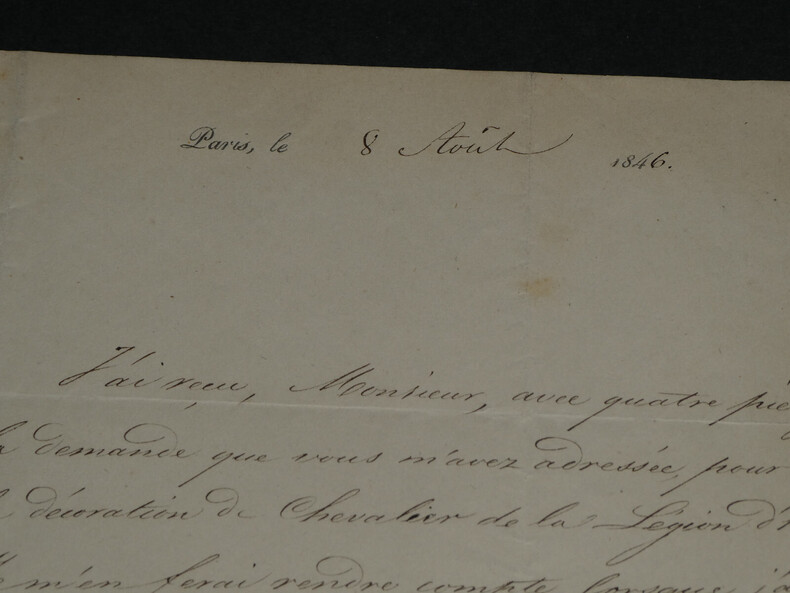 Paris, le 8 Août 1846.
J'ai reçu, Monsieur, avec quatre
la demande que vous m'avez adressée, pour
décoration de Chevalier de la Légion
m'en ferai rendre compte lorsque